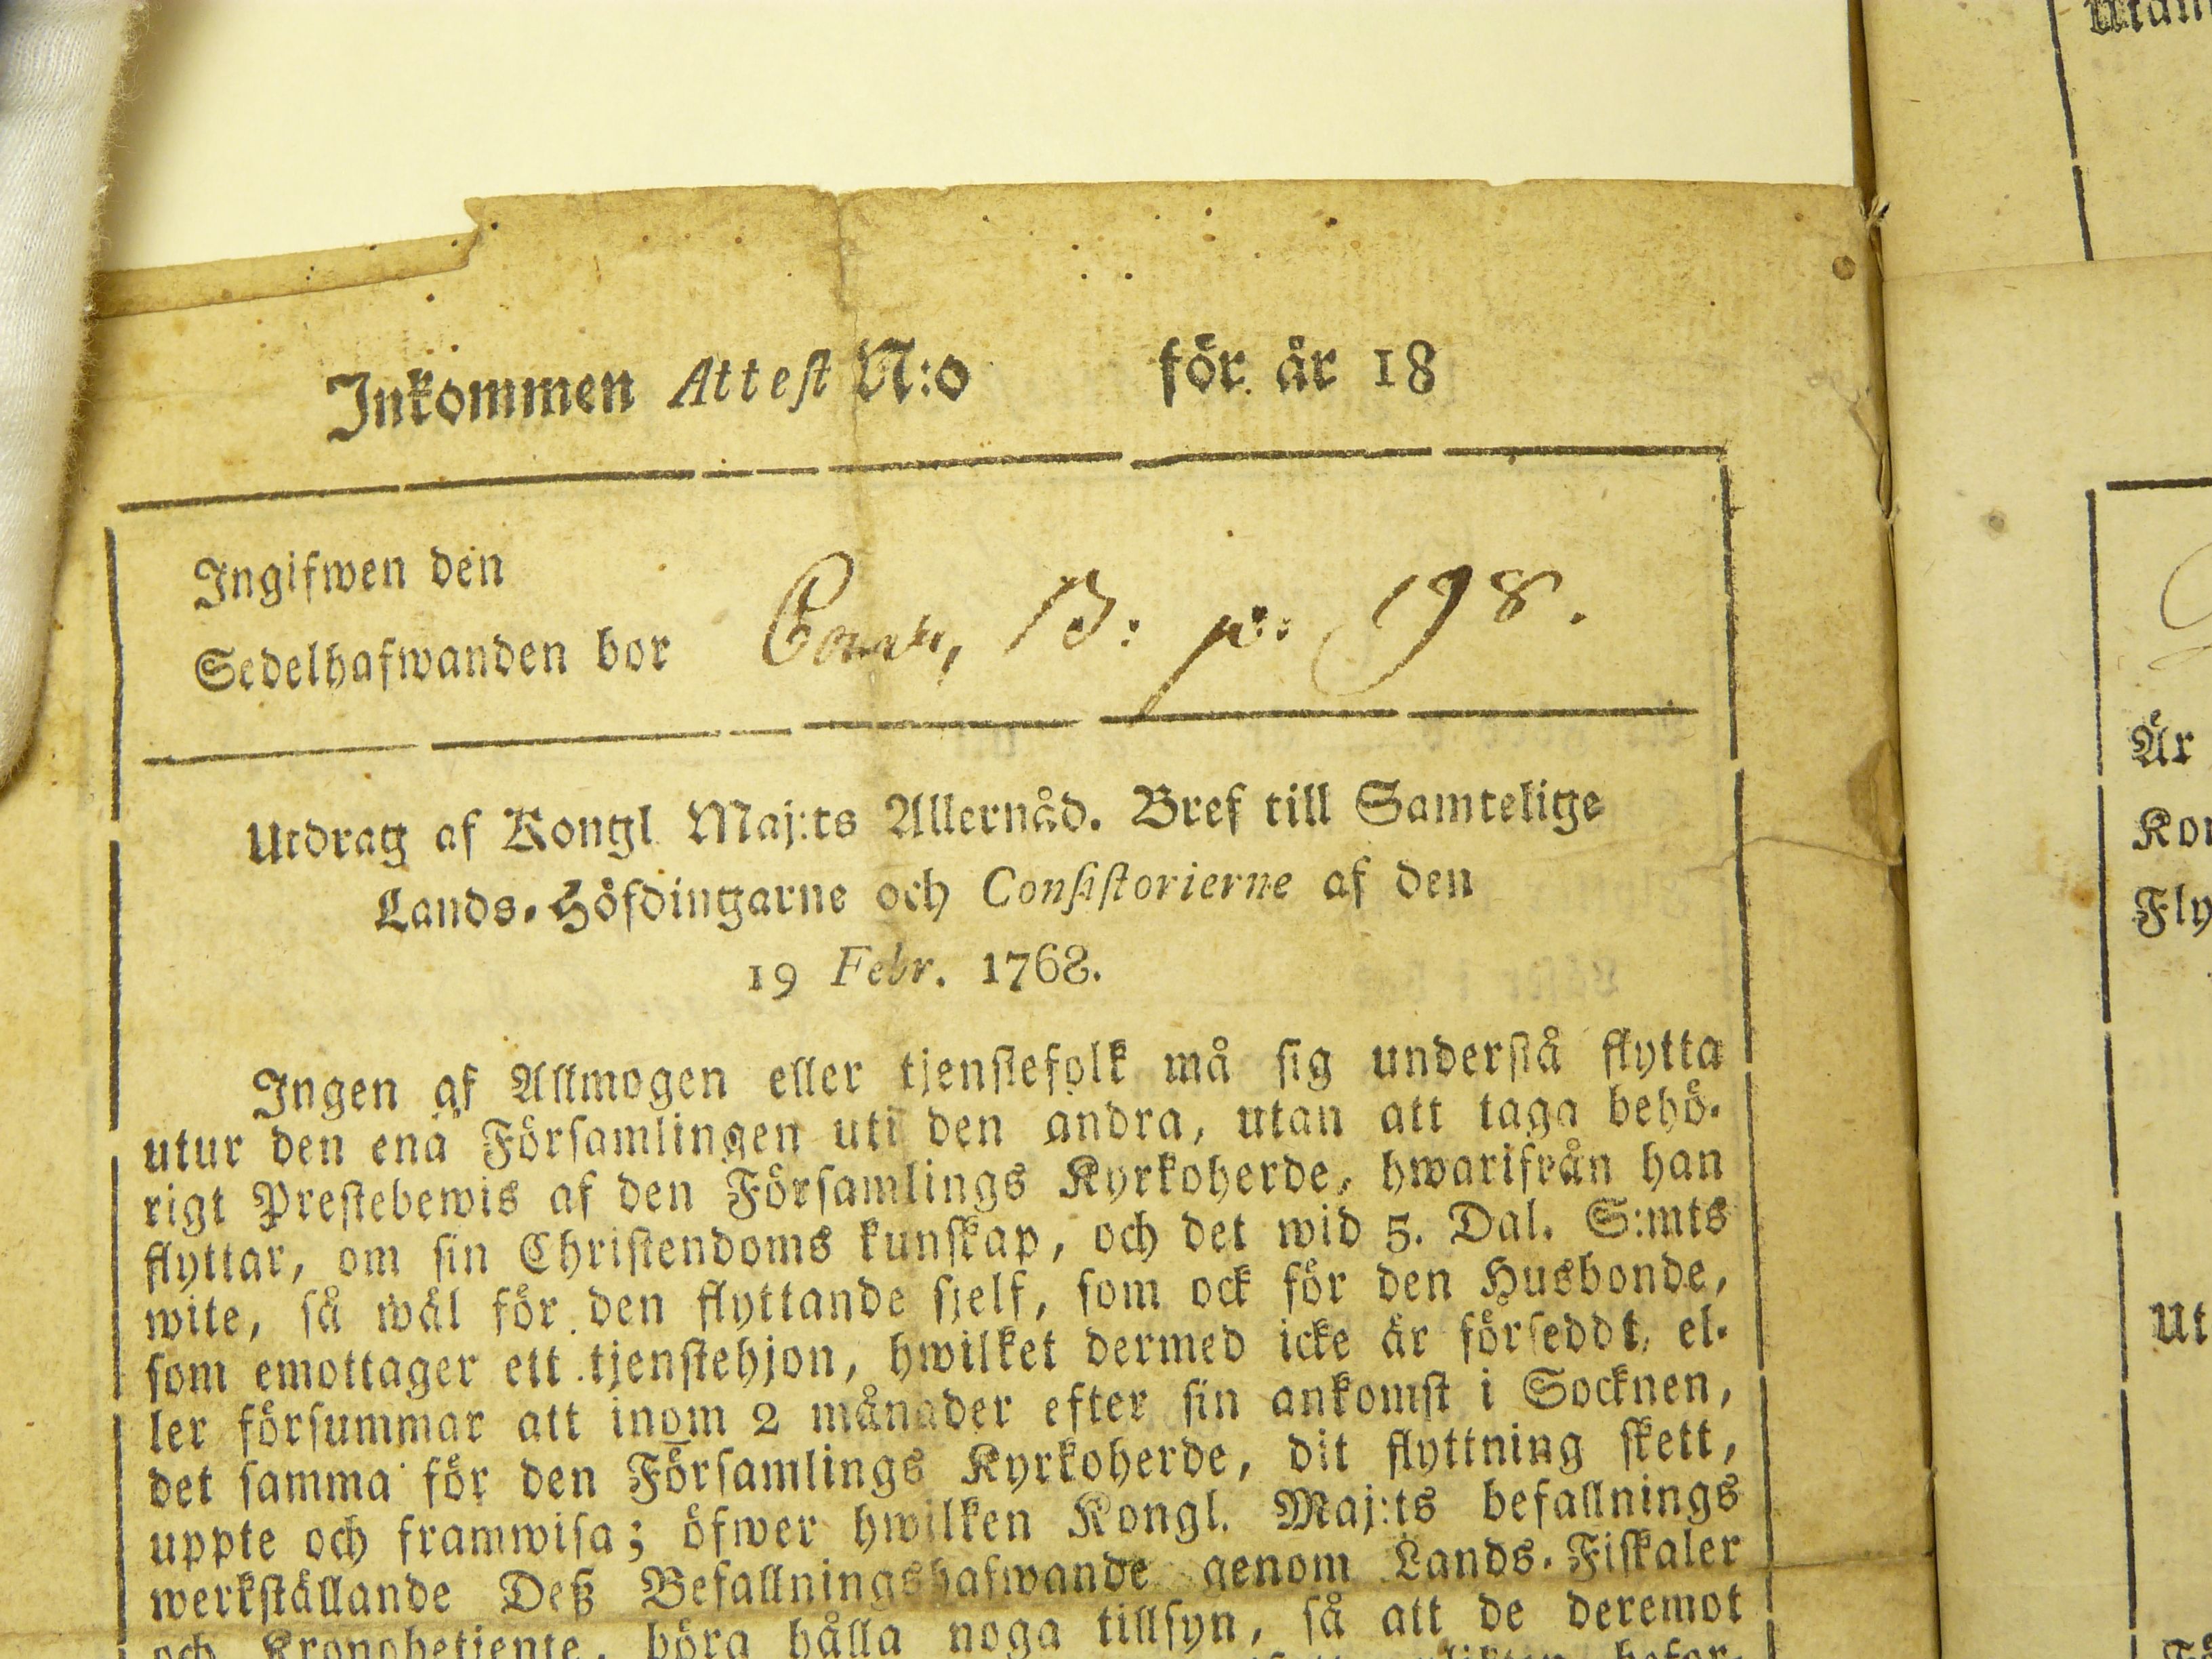 Inkommen Attest N:o för år 18
Ingifwen den
Sedelhafwanden bor B: p: 198.
Utdrag af Kongl Maj:ts Allernåd. Bref till Samtelige
Lands-Höfdingarne och Consistorierne af den
19 Febr. 1768.
Ingen af Allmogen eller tjenstefolk må sig understå flytta
utur den ena Församlingen uti den andra, utan att taga behö-
rigt Prestebewis af den Församlings Kyrkoherde, hwarifrån han
flyttar, om sin Christendoms kunskap, och det wid 5. Dal. S:mts
wite, så wäl för den flyttande sjelf, som ock för den Husbonde,
som emottager ett tjenstehjon, hwilket dermed icke är förseddt, el-
ler försummar att inom 2 månader efter sin ankomst i Socknen,
det samma för den Församlings Kyrkoherde, dit flyttning skett,
uppte och framwisa; öfwer hwilken Kongl. Maj:ts befallnings
werkställande Deß Befallningshafwande genom Lands-Fiskaler
och Kronobetjente, böra hålla noga tillsyn, så att de deremot
Är
Fly
Ut